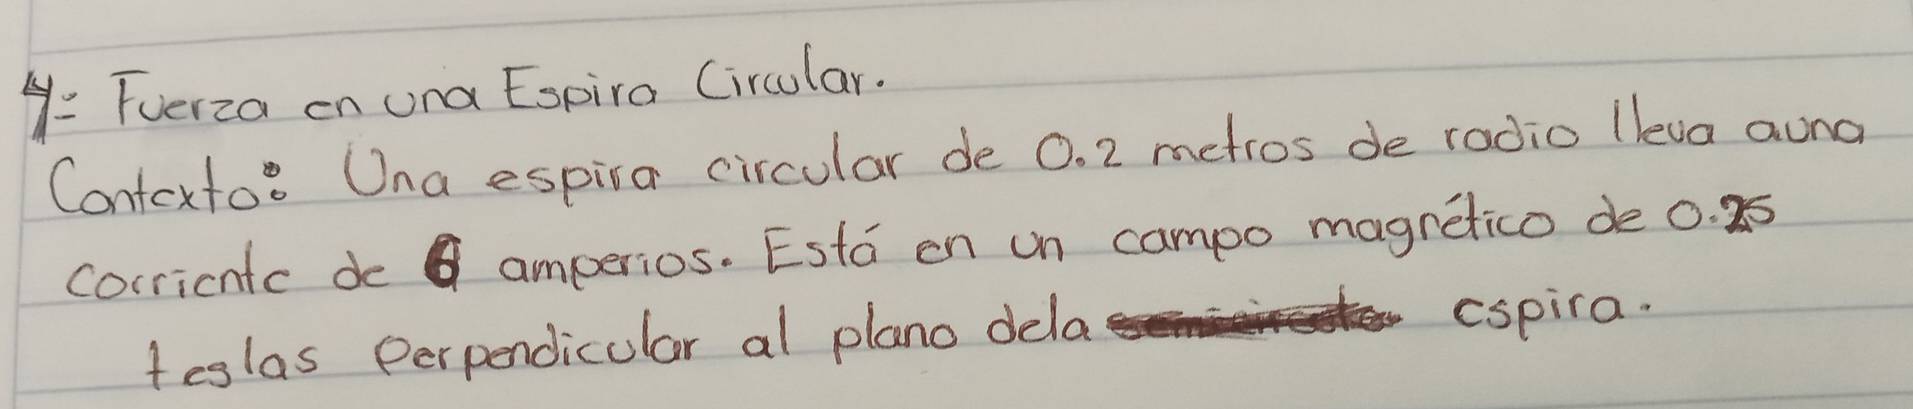 4= Fuerza en una Espira Circular.
Contexto: Una espira circular de 0.2 metros de radio lleva auna
corriente de 6 amperios. Está en un campo magnético de 0.25
teslas Perpendicular al plano dela espira.